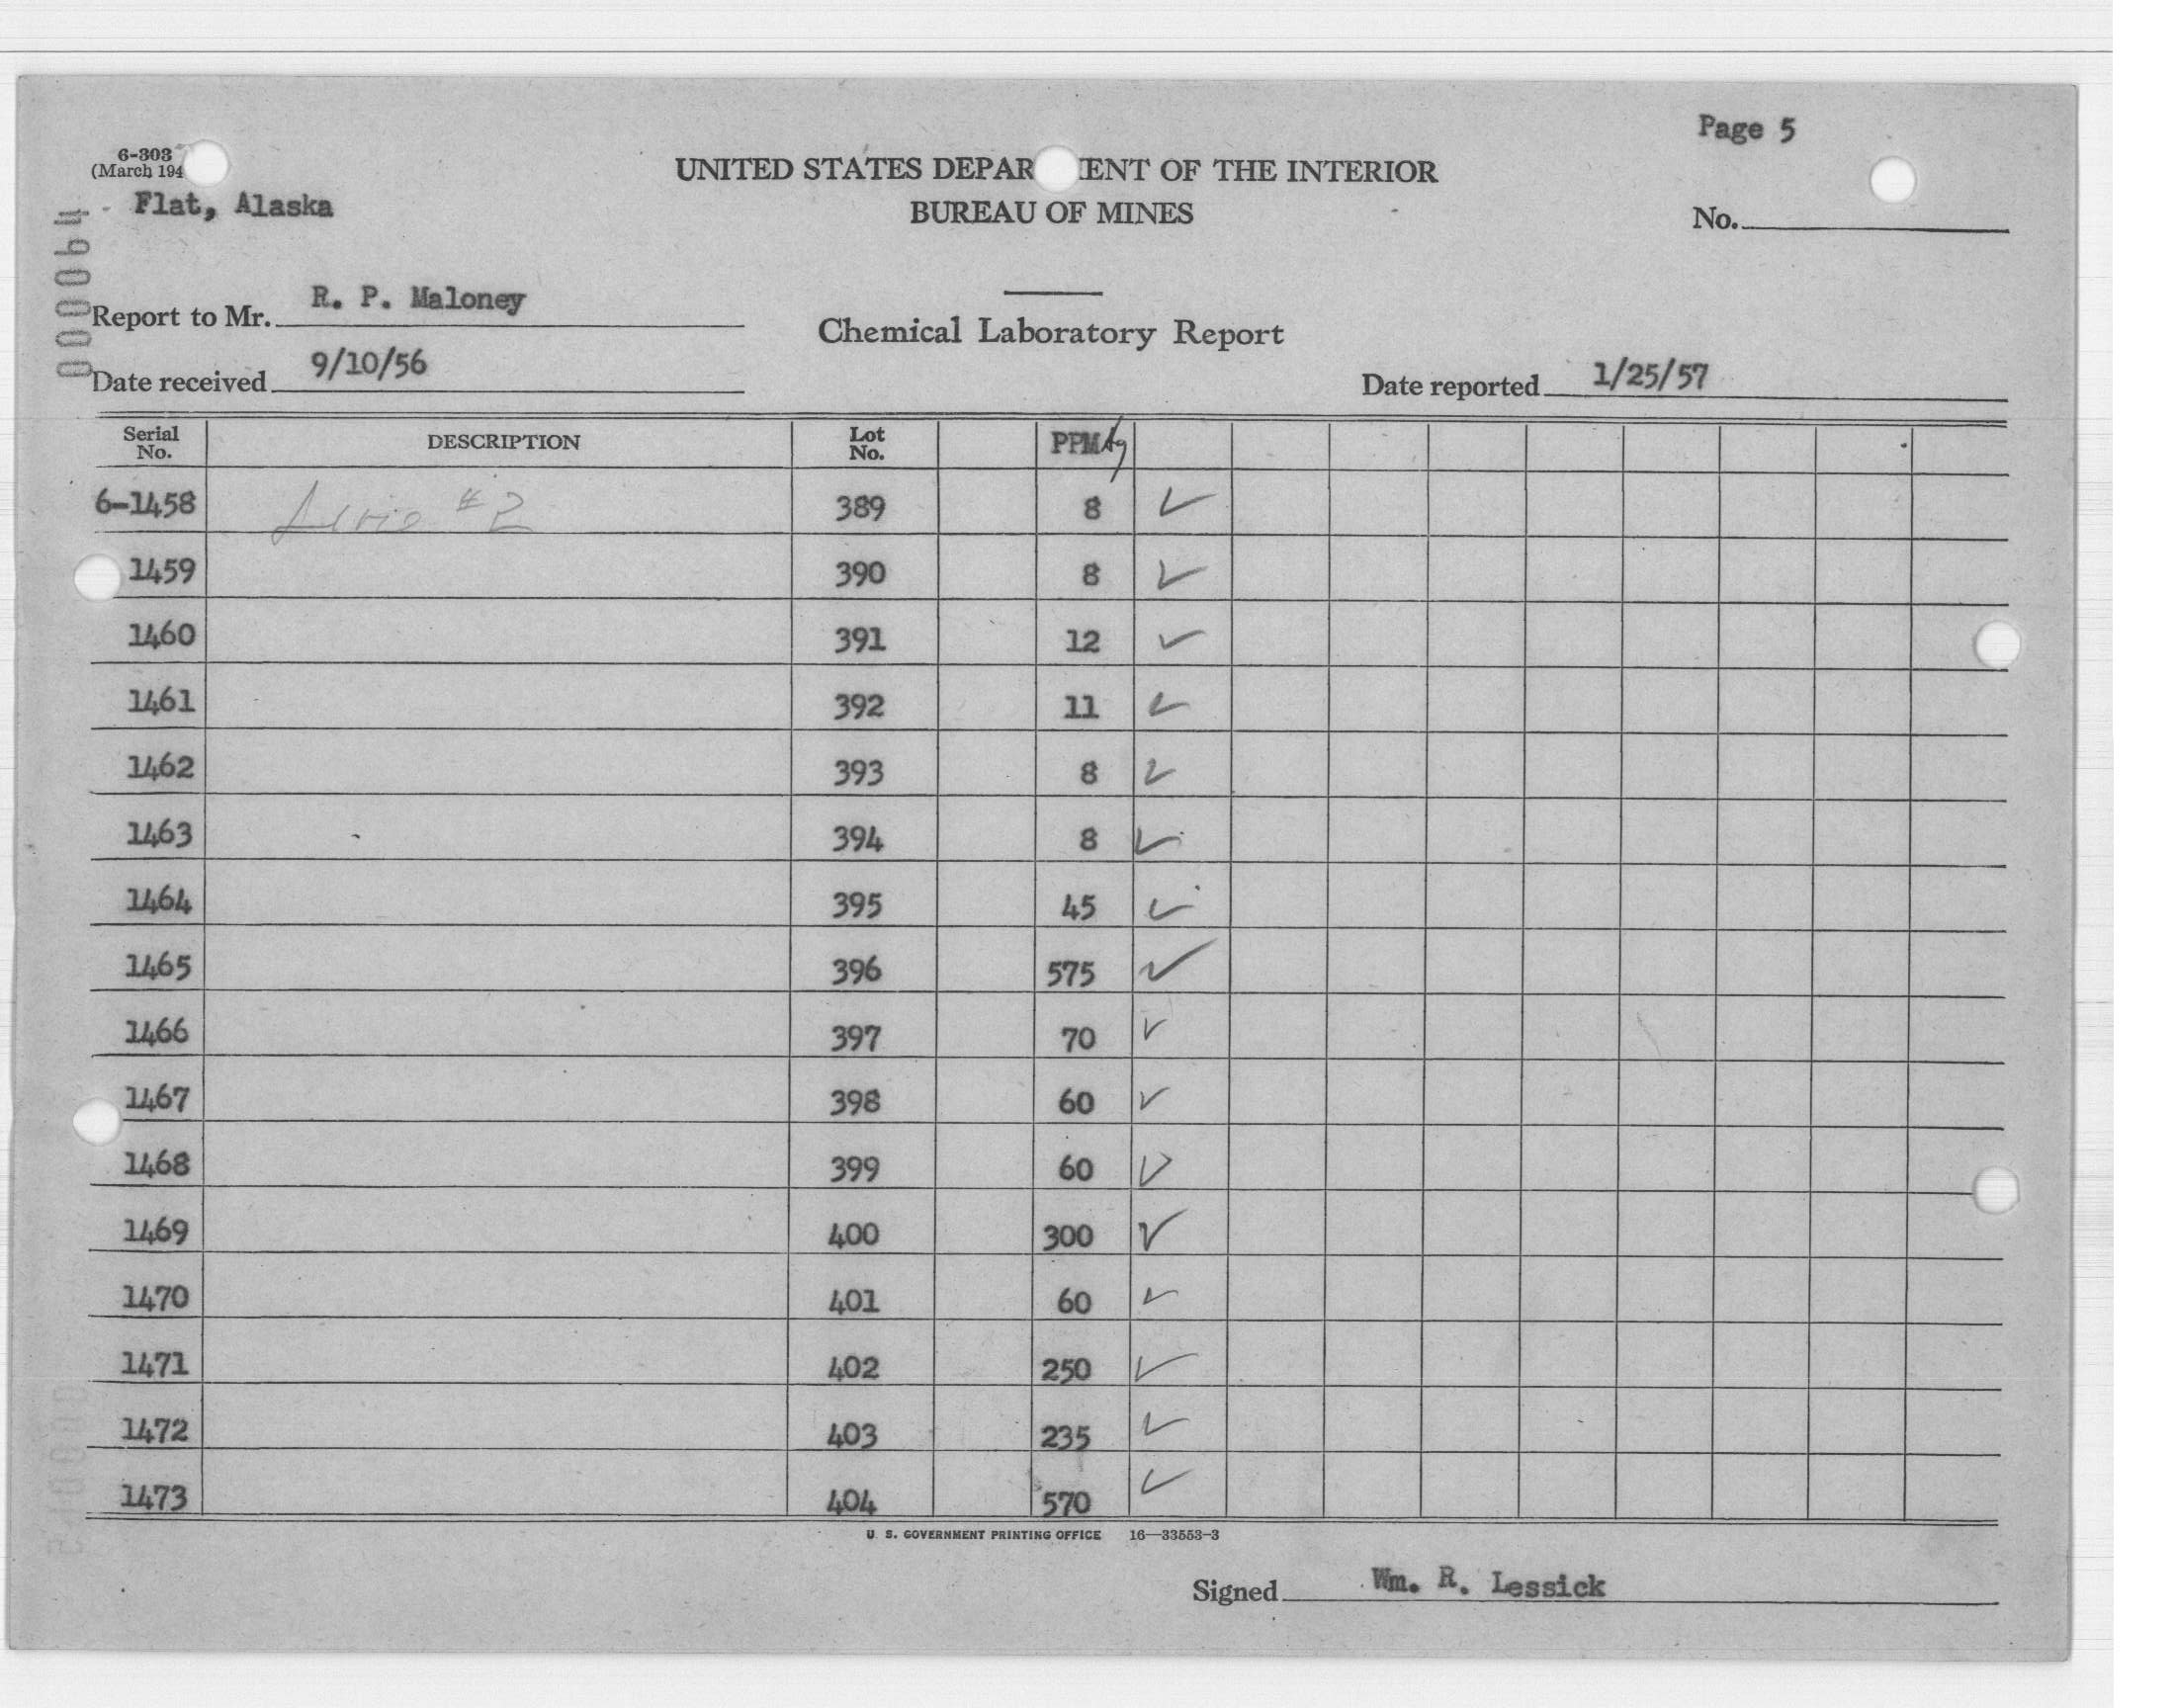 Page 5
6-303
(March 194
UNITED STATES DEPAR ENT OF THE INTERIOR
Flat, Alaska
BUREAU OF MINES
No.
Report to Mr. R. P. Maloney
Chemical Laboratory Report
Date received 9/10/56
Date reported 1/25/57
Serial No. DESCRIPTION Lot No. PPM Ag
6-1458 #2 389 8 ✓
1459 390 8 ✓
1460 391 12 ✓
1461 392 11 ✓
1462 393 8 ✓
1463 394 8 ✓
1464 395 45 ✓
1465 396 575 ✓
1466 397 70 ✓
1467 398 60 ✓
1468 399 60 ✓
1469 400 300 ✓
1470 401 60 ✓
1471 402 250 ✓
1472 403 235 ✓
1473 404 570 ✓
U. S. GOVERNMENT PRINTING OFFICE 16—33553-3
Signed Wm. R. Lessick